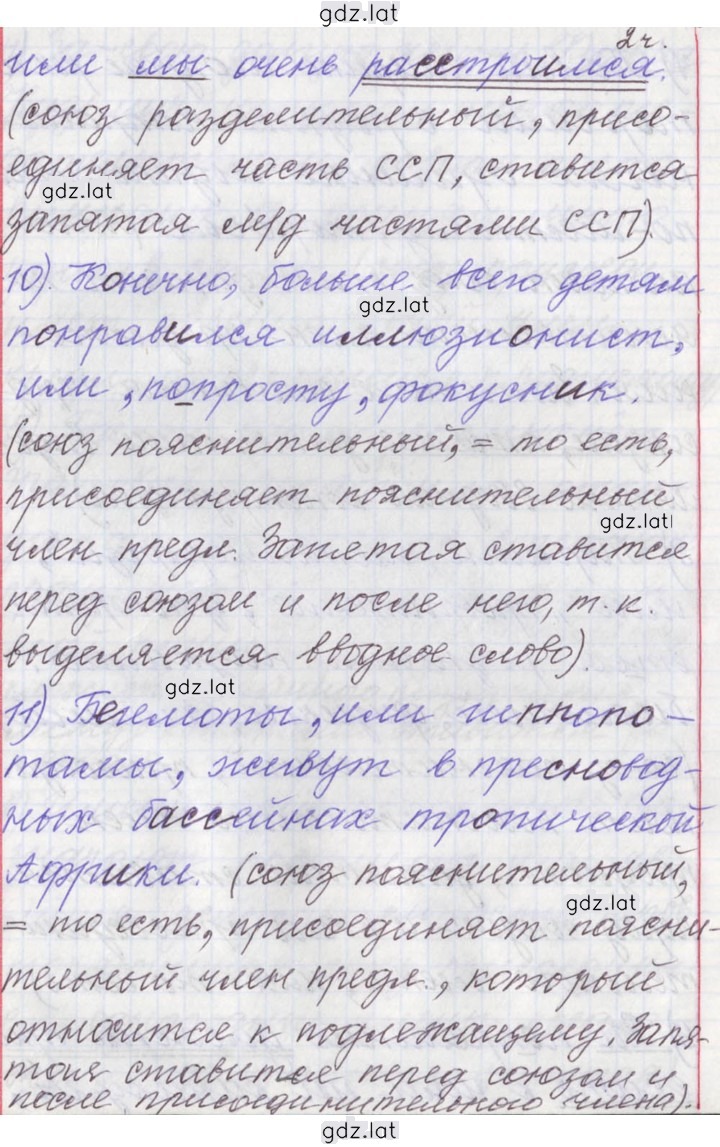 gdz.lat
2ч.
или мы очень расстроимся.
(союз разделительный, присо-
единяет часть ССП, ставится
gdz.lat
gdz.lat
запятая м/д частями ССП).
10). Конечно, больше всего детям
gdz.lat
понравился иллюзионист,
или, попросту, фокусник.
(союз пояснительный, = то есть,
присоединяет пояснительный
gdz.lat
член предл. Запятая ставится
перед союзом и после него, т.к.
выделяется вводное слово).
gdz.lat
11) Бегемоты, или гиппопо-
тамы, живут в пресновод-
ных бассейнах тропической
Африки. (союз пояснительный,
gdz.lat
= то есть, присоединяет поясни-
тельный член предл., который
относится к подлежащему. Запя-
тая ставится перед союзом и
после присоединительного члена).
gdz.lat